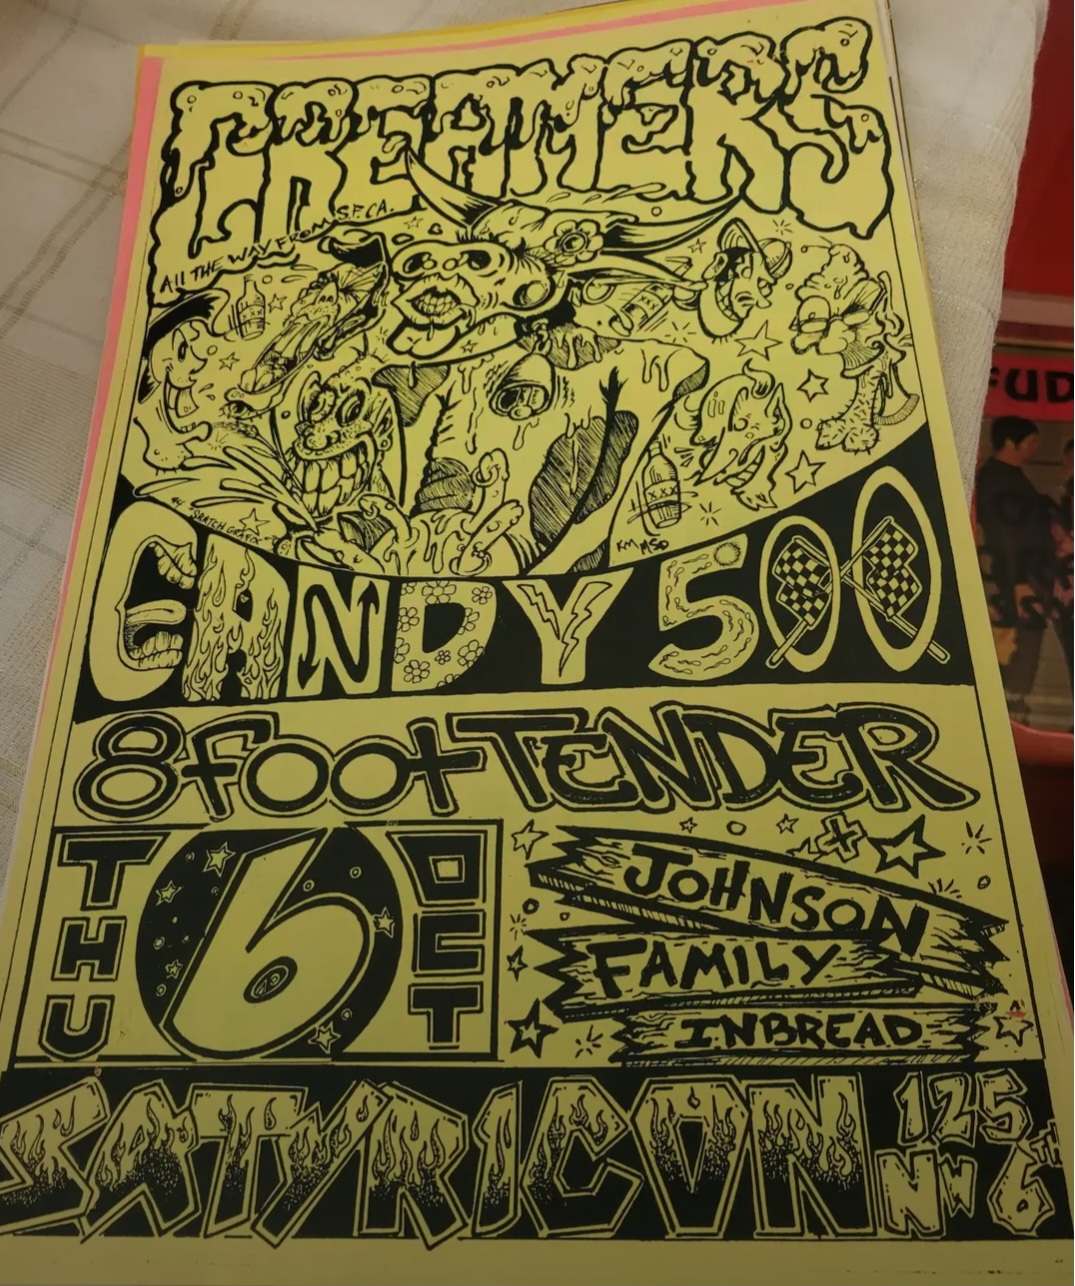 CREAMERS
All THE WAY FROM S.F. CA.
XXX
SRATCH GRAFIX
KM MSD
CANDY 500
8 foot TENDER
THU 6 OCT
JOHNSON
FAMILY
INBREAD
SATYRICON 125 NW 6th
FUD